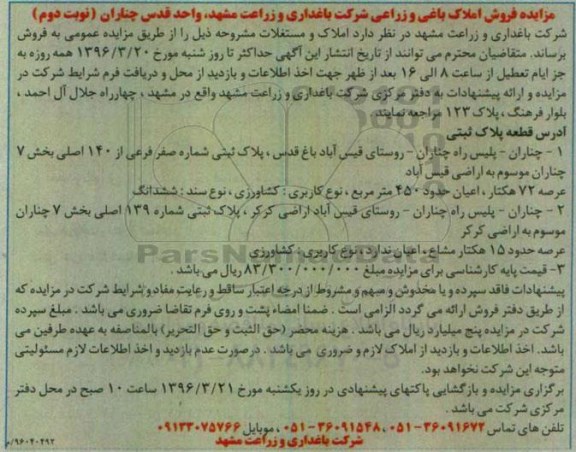 مزایده فروش املاک باغی و زراعی شرکت باغداری و زراعت مشهد، واحد قدس چناران (نوبت دوم)
شرکت باغداری و زراعت مشهد در نظر دارد املاک و مستغلات مشروحه ذیل را از طریق مزایده عمومی به فروش
برساند. متقاضیان محترم می توانند از تاریخ انتشار این آگهی حداکثر تا روز شنبه مورخ ۱۳۹۶/۳/۲۰ همه روزه به
جز ایام تعطیل از ساعت ۸ الی ۱۶ بعد از ظهر جهت اخذ اطلاعات و بازدید از محل و دریافت فرم شرایط شرکت در
مزایده و ارائه پیشنهادات به دفتر مرکزی شرکت باغداری و زراعت مشهد واقع در مشهد ، چهارراه جلال آل احمد ،
بلوار فرهنگ ، پلاک ۱۲۳ مراجعه نمایند.
آدرس قطعه پلاک ثبتی
۱ - چناران - پلیس راه چناران - روستای قیس آباد باغ قدس ، پلاک ثبتی شماره صفر فرعی از ۱۴۰ اصلی بخش ۷
چناران موسوم به اراضی قیس آباد
عرصه ۷۲ هکتار ، اعیان حدود ۴۵۰ متر مربع ، نوع کاربری : کشاورزی ، نوع سند : ششدانگ
۲ - چناران - پلیس راه چناران - روستای قیس آباد اراضی کرکر ، پلاک ثبتی شماره ۱۳۹ اصلی بخش ۷ چناران
موسوم به اراضی کرکر
عرصه حدود ۱۵ هکتار مشاع ، اعیان ندارد ، نوع کاربری : کشاورزی
۳- قیمت پایه کارشناسی برای مزایده مبلغ ۸۳/۳۰۰/۰۰۰/۰۰۰ ریال می باشد .
پیشنهادات فاقد سپرده و یا مخدوش و مبهم و مشروط از درجه اعتبار ساقط و رعایت مفاد و شرایط شرکت در مزایده که
از طریق دفتر فروش ارائه می گردد الزامی است . ضمنا امضاء پشت و روی فرم تقاضا ضروری می باشد . مبلغ سپرده
شرکت در مزایده پنج میلیارد ریال می باشد . هزینه محضر (حق الثبت و حق التحریر) بالمناصفه به عهده طرفین می
باشد. اخذ اطلاعات و بازدید از املاک لازم و ضروری می باشد . درصورت عدم بازدید و اخذ اطلاعات لازم مسئولیتی
متوجه این شرکت نخواهد بود.
برگزاری مزایده و بازگشایی پاکتهای پیشنهادی در روز یکشنبه مورخ ۱۳۹۶/۳/۲۱ ساعت ۱۰ صبح در محل دفتر
مرکزی شرکت می باشد .
تلفن های تماس ۳۶۰۹۱۶۷۲ - ۰۵۱ ، ۳۶۰۹۱۵۴۸ - ۰۵۱ ، موبایل ۰۹۱۳۳۰۷۵۷۶۶
شرکت باغداری و زراعت مشهد
۹۶۰۴۰۴۹۲/م
ParsNamadData